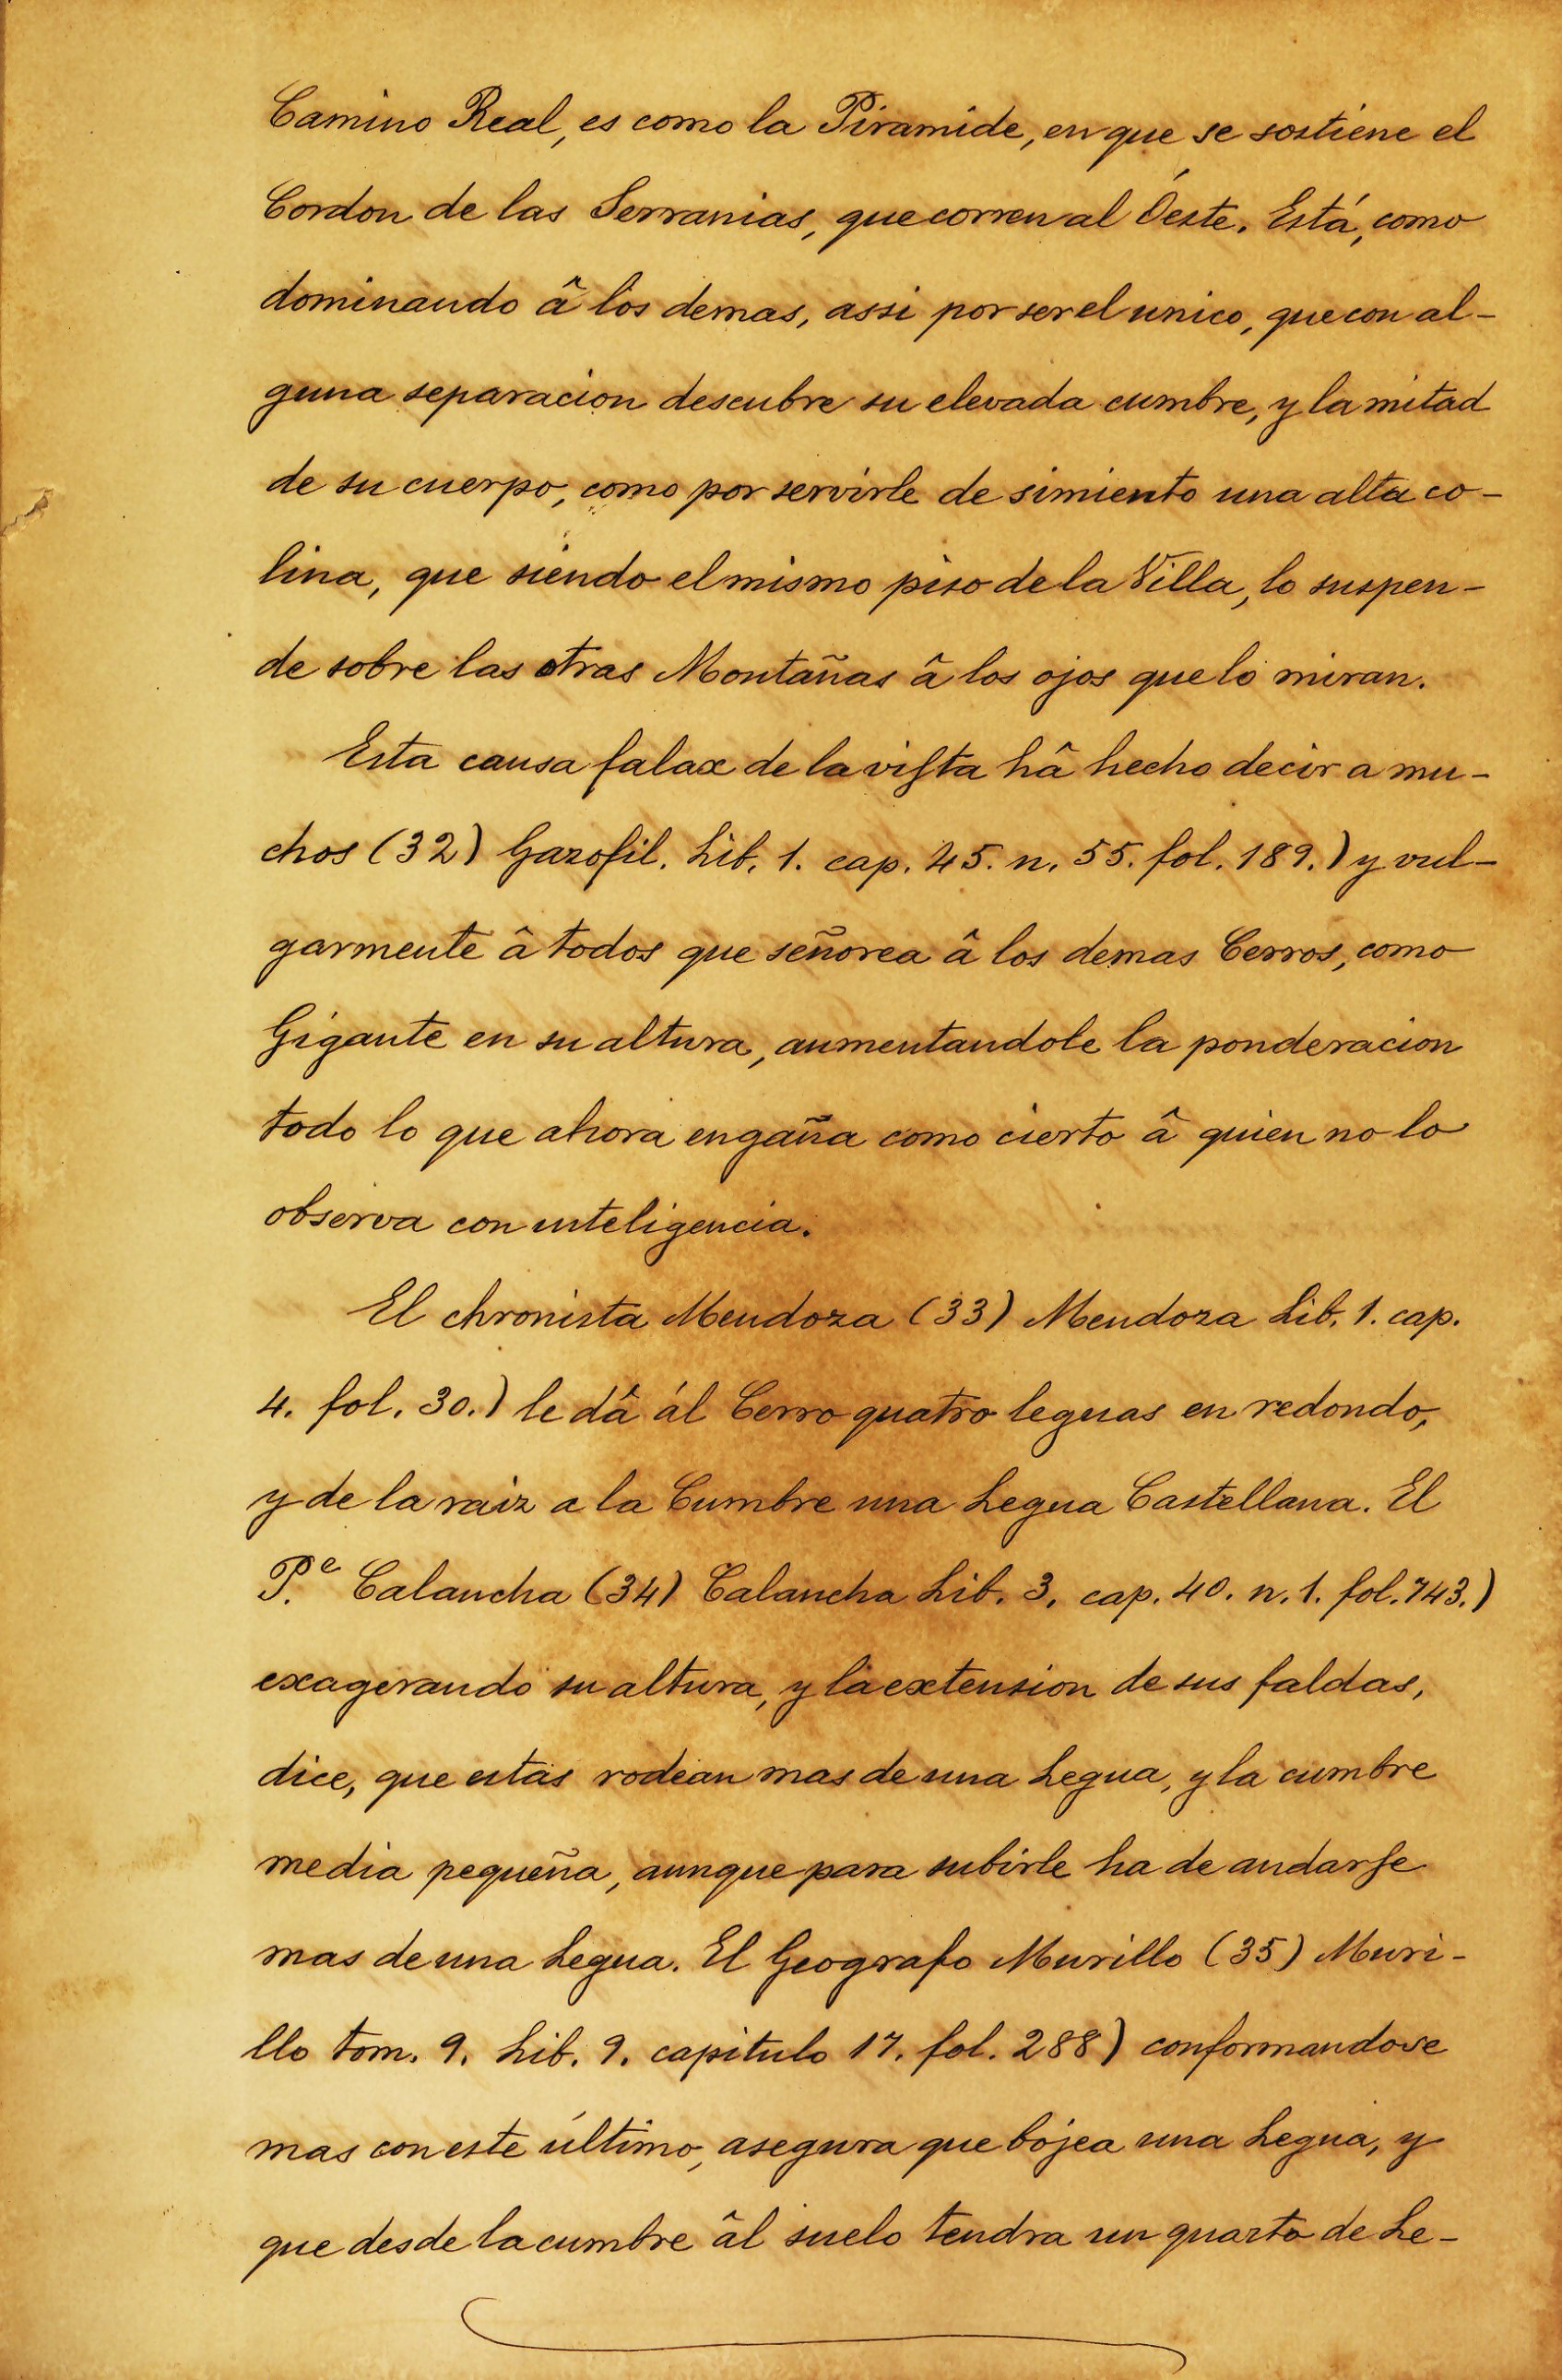 Camino Real, es como la Piramide, en que se sostiene el
Cordon de las Serranias, que corren al Óeste. Está, como
dominando â los demas, assi por ser el unico, que con al-
guna separacion descubre su elevada cumbre, y la mitad
de su cuerpo, como por servirle de simiento una alta co-
lina, que siendo el mismo piso de la Villa, lo suspen-
de sobre las otras Montañas â los ojos que lo miran.
Esta causa falax de la vista hâ hecho decir a mu-
chos (32) Gazofil. Lib. 1. cap. 45. n. 55. fol. 189.) y vul-
garmente â todos que señorea â los demas Cerros, como
Gigante en su altura, aumentandole la ponderacion
todo lo que ahora engaña como cierto â quien no lo
observa con inteligencia.
El chronista Mendoza (33) Mendoza Lib. 1. cap.
4. fol. 30.) le dâ ál Cerro quatro leguas en redondo,
y de la raiz a la Cumbre una Legua Castellana. El
P.e Calancha (34) Calancha Lib. 3. cap. 40. n. 1. fol. 743.)
exagerando su altura, y la extension de sus faldas,
dice, que estas rodean mas de una Legua, y la cumbre
media pequeña, aunque para subirle ha de andarse
mas de una Legua. El Geografo Murillo (35) Muri-
llo tom. 9. Lib. 9. capitulo 17. fol. 288) conformandose
mas con este último, asegura que bojea una Legua, y
que desde la cumbre âl suelo tendra un quarto de Le-